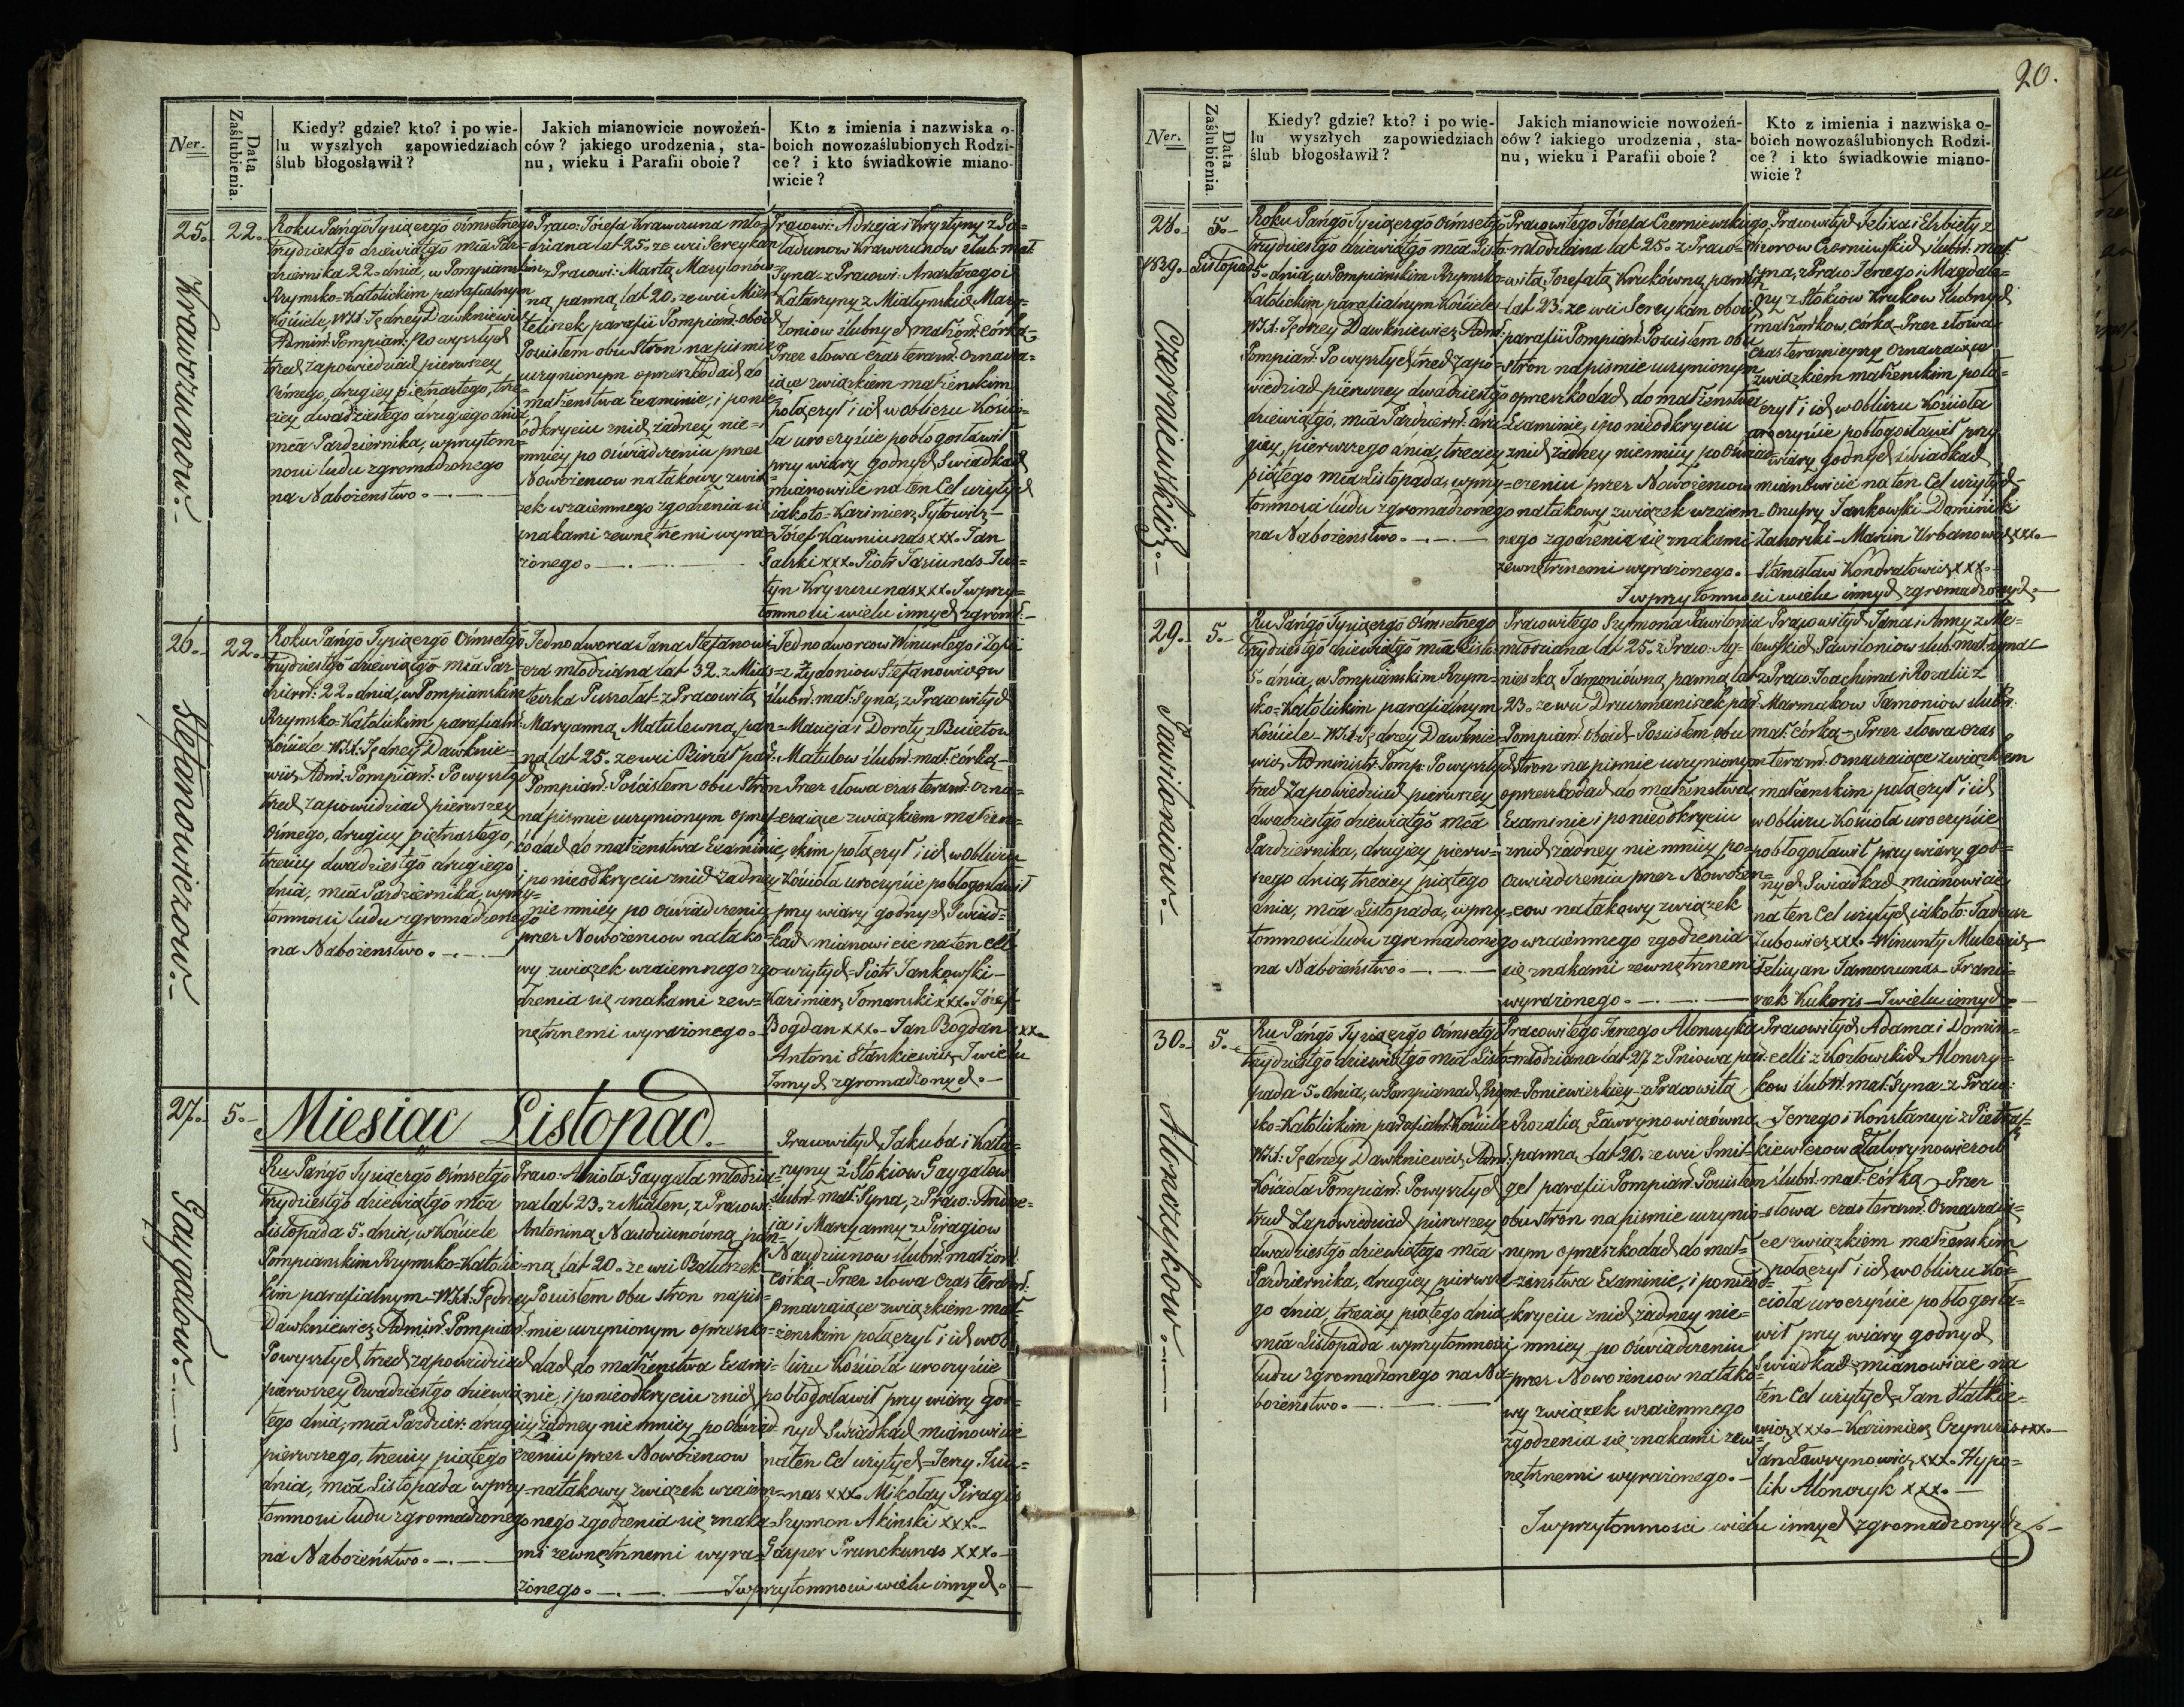 Ner.
Data Zaślubienia.
Kiedy? gdzie? kto? i po wie-
lu wyszłych zapowiedziach
ślub błogosławił?
Jakich mianowicie nowożeń-
ców? jakiego urodzenia, sta-
nu, wieku i Parafii oboie?
Kto z imienia i nazwiska o-
boich nowozaślubionych Rodzi-
ce? i kto świadkowie miano-
wicie?
25.
22.
Krawczunow.
Roku Pańgō Tysiącgō ośmsetnego
trzydziestgō dziewiątgō mca Paź-
dziernika 22. dnia, w Pompianskim
Rzymsko-Katolickim parafialnym
Kościele, WJX. Jędrzey Dawkniewicz
Admin. Pompian. Po wyszłych
trzech zapowiedziach pierwszey
Osmego, drugiey piętnastego, trze-
ciey dwudziestego drugiego dnia,
mca Pazdziernika, w przytom-
nosci ludu zgromadzonego
na Nabożenstwo.
Praco. Józefa Krawczuna mło-
dziana lat 25. ze wsi Sereykan
z Pracowi. Martą Marytonow-
ną panną lat 20. ze wsi
parafii Pompian. oboich
Poscistem obu Stron na pismie
uczynionym o przeszkodach do
małżenstwa Examinie, i ponie-
odkryciu znich żadney nie-
mniey po oświadczeniu przez
Nowożeńcow na takowy zwią-
zek wzaiemnego zgodzenia się
znakami zewnętrznemi wyra-
żonego.
Pracowi. Adzeja i Krystyny z
Krawczunow ślub. mał.
Syna - z Pracowi. Anastazego i
Katarzyny z Miałynskich Mary-
toniow ślubnych małżon. córką,
Przez słowa czas teraźn. oznacza-
iące związkiem małżenskim
połączył i ich w obliczu Koscio-
ła uroczyście pobłogosławił
przy wiary godnych Swiadkach
mianowicie na ten Cel użytych
iakoto = Kazimierz Tytowicz -
Józef Kawniunas xxx. Jan
Galski xxx. Piotr Jasiunas
xxx. J w przy-
tomności wielu innych zgrom.
26.
22.
Stefanowiczow.
Roku Pańgō Tysiącgō ośmsetgō
trzydziestgō dziewiątgō mca Paź-
dziern: 22. dnia, w Pompianskim
Rzymsko-Katolickim parafialn:
Kościele - WJX. Jędrzey Dawknie-
wicz Adm: Pompian: Po wyszłych
trzech zapowiedziach pierwszey
ośmego, drugiey piętnastego,
trzeciey dwudziestgō drugiego
dnia, mca Pazdziernika, w przy-
tomnosci ludu zgromadzonego
na Nabożenstwo.
Jednodworca Jana Stefanowi-
cza młodziana lat 32. z Mias-
teczka Puszołat - z Pracowitą
Maryanną Matulewną, pan-
ną lat 25. ze wsi par:
Pompian: Pościstem obu Stron
na pismie uczynionym o przesz-
kodach do małżenstwa Examinie,
i ponieodkryciu znich żadney
nie mniey po oświadczeniu
przez Nowożeńcow na tako-
wy związek wzaiemnego zgo-
dzenia się znakami zew-
nętrznemi wyrażonego.
Jednodworcow Wincentego i Zofii
z Żydoniow Stefanowiczow
ślubn: mał: Syna, z Pracowitych
Macieja i Doroty z
Matulow ślubn: mał: córką -
Przez słowa czas teraźn: ozna-
czaiące związkiem małżen-
skim połączył i ich w obliczu
Kościoła uroczyście pobłogosławił
przy wiary godnych Swiad-
kach mianowicie na ten cel
użytych = Piotr Jankowski -
Kazimierz Tomanski xxx. Józef
Bogdan xxx. - Jan Bogdan xxx.
Antoni Stankiewicz J wielu
Innych zgromadzonych.
27.
5.
Gaygałow.
Miesiąc Listopad.
Ru Pańgō Tysiącgō ośmsetgō
trzydziestgō dziewiątgō mca
Listopada 5. dnia, w Kościele
Pompianskim Rzymsko-Katolic-
kim parafialnym - WJX. Jędrzey
Dawkniewicz Admin. Pompian.
Po wyszłych trzech zapowiedziach
pierwszey Dwudziestgo dziewią-
tego dnia, mca Pazdzier. drugiey
pierwszego, trzeciey piątego
dnia, mca Listopada w przy-
tomnosci ludu zgromadzonego
na Nabożeństwo.
Praco. Anioła Gaygała młodzia-
na lat 23. z Miałen, z Pracow.
Antoniną Naudziunówną pan-
ną lat 20. ze wsi
Poscistem obu stron na pis-
mie uczynionym o przeszko-
dach do małżenstwa Exami-
nie, i ponieodkryciu znich
żadney nie mniey po oświad-
czeniu przez Nowożencow
na takowy związek wzaiem-
nego zgodzenia się znaka-
mi zewnętrznemi wyra-
żonego.
Pracowitych Jakuba i Kata-
rzyny z Stokiow Gaygałow
ślubn: mał: Syna, z Praco: Andrze-
ja i Maryanny z Piragiow
Naudziunow ślubn: małżon:
córką - Przez słowa czas teraźn:
oznaczaiące związkiem mał-
żenskim połączył i ich w ob-
liczu Kościoła uroczyście
pobłogosławił przy wiary god-
nych Swiadkach mianowicie
na ten Cel użytych = Jerzy
xxx. Mikołay Piragis
Szymon Akinski xxx.
Gasper Prunckunas xxx.
J w przytomnosci wielu innych.
20.
Ner.
Data Zaślubienia.
Kiedy? gdzie? kto? i po wię-
lu wyszłych zapowiedziach
ślub błogosławił?
Jakich mianowicie nowożeń-
ców? iakiego urodzenia, sta-
nu, wieku i Parafii oboie?
Kto z imienia i nazwiska o-
boich nowozaślubionych Rodzi-
ce? i kto świadkowie miano-
wicie?
28.
5.
1839.
Listopad
Czerniewskich.
Roku Pańgō Tysiącgō Ośmsetgō
trzydziestgō dziewiątgō mca Listo-
5. dnia, w Pompianskim Rzymsko-
Katolickim parafialnym Kościele
WJX. Jędrzey Dawkniewicz Adm.
Pompian. Po wyszłych trzech zapo-
wiedziach pierwszey dwudziestgō
dziewiątgō, mca Pazdziern. dru-
giey, pierwszego dnia, trzeciey
piątego mca Listopada, w przy-
tomnosci ludu zgromadzonego
na Nabożenstwo.
Pracowitego Józefa Czerniewskiego,
młodziana lat 25. z Praco-
witą Jozefatą Krukówną panną
lat 23. ze wsi Sereykan oboie
parafii Pompian. Poscistem obu
stron na pismie uczynionym
o przeszkodach do małżeństwa
Examinie, i po nieodkryciu
znich żadney niemniey po oświad-
czeniu przez Nowożencow
na takowy związek wzaiem-
nego zgodzenia się znakami
zewnętrznemi wyrażonego.
Pracowitych Felixa i Elżbiety z
Czerniewskich ślubn: mał:
Syna, z Praco. Jerzego i Magdale-
ny z Stokiow Krukow ślubnych
małżonkow, córką - Przez słowa
czas teraznieyszy oznaczaiące
związkiem małżenskim połą-
czył i ich w obliczu Kościoła
uroczyście pobłogosławił przy
wiary godnych świadkach
mianowicie na ten Cel użytych -
Onufry Jankowski Dominik
Zahorski - Marcin Urbanowicz xxx.
Stanisław Kondratowicz xxx.
J w przytomności wielu innych zgromadzonych.
29.
5.
Pawilioniow.
Ru Pańgō Tysiącgō Ośmsetnego
trzydziestgō dziewiątgō mca Listo-
5. dnia, w Pompianskim Rzym-
sko-Katolickim parafialnym
Kościele - WJX. Jędrzey Dawknie-
wicz Administr. Pomp. Po wyszłych
trzech Zapowiedziach pierwszey
dwudziestgō dziewiątgō mca
Pazdziernika, drugiey pierw-
szego dnia, trzeciey piątego
dnia, mca Listopada, w przy-
tomnosci ludu zgromadzonego
na Nabożeństwo.
Pracowitego Szymona Pawilonia
młodziana lat 25. z Praco. Ag-
nieszką Tamoniówną panną lat
23. ze wsi Drucmaniszek par:
Pompian. oboich Poscistem obu
Stron na pismie uczynionym
o przeszkodach do małżenstwa
Examinie i po nieodkryciu
znich żadney nie mniey po-
oswiadczeniu przez Nowożen-
cow na takowy związek
wzaiemnego zgodzenia
się znakami zewnętrznemi
wyrażonego.
Pracowitych Jana i Anny z
Pawiloniow ślub: mał: syna
z Praco. Joachima i Rozalii z
Marmakow Tamoniow ślubn:
mał: córką - Przez słowa czas
teraźn: oznaczaiące związkiem
małżenskim połączył i ich
w Obliczu Kościoła uroczyście
pobłogosławił przy wiary god-
nych Swiadkach mianowicie
na ten Cel użytych iakoto: Tadeusz
Zubowicz xxx. - Wincenty
Felicyan Tamoszunas - Franci-
szek Kukoris - J wielu innych
30.
5.
Alonczykow.
Ru Pańgō Tysiącgō Ośmsetgō
trzydziestgō dziewiątgō mca Listo-
pada 5. dnia, w Pompianach Rzym-
sko-Katolickim parafialn: Kościele
WJX. Jędrzey Dawkniewicz Adm:
Kościoła Pompian: Po wyszłych
trzech Zapowiedziach pierwszey
dwudziestgō dziewiątego mca
Pazdziernika, drugiey pierwsze-
go dnia, trzeciey piątego dnia
mca Listopada w przytomnosci
ludu zgromadzonego na Na-
bożenstwo.
Pracowitego Jerzego Alonczyka
młodziana lat 27 z Pniowa par:
Poniewiezkiey - z Pracowitą
Rozalią Ławrynowiczówną
panną lat 20. ze wsi Smil-
gel parafii Pompian. Poscistem
obu Stron na pismie uczynio-
nym o przeszkodach do mał-
żenstwa Examinie, i ponieod-
kryciu znich żadney nie-
mniey po oświadczeniu
przez Nowożencow na tako-
wy związek wzaiemnego
zgodzenia się znakami zew-
nętrznemi wyrażonego.
Pracowitych Adama i Domin-
celli z Kozłowskich Alonczy-
kow ślubn: mał: Syna z Praco:
Jerzego i Konstancyi z Pietkay-
kiewiczow Ławrynowiczow
ślubn: mał: Córką Przez
słowa czas teraźn: oznaczaią-
ce związkiem małżenskim
połączył i ich w obliczu Koś-
cioła uroczyście pobłogosła-
wił przy wiary godnych
Swiadkach mianowicie na
ten Cel użytych - Jan Statkie-
wicz xxx. - Kazimierz xxx.
Jan Ławrynowicz xxx. Hypo-
lit Alonczyk xxx.
J w przytomnosci wielu innych zgromadzonych.